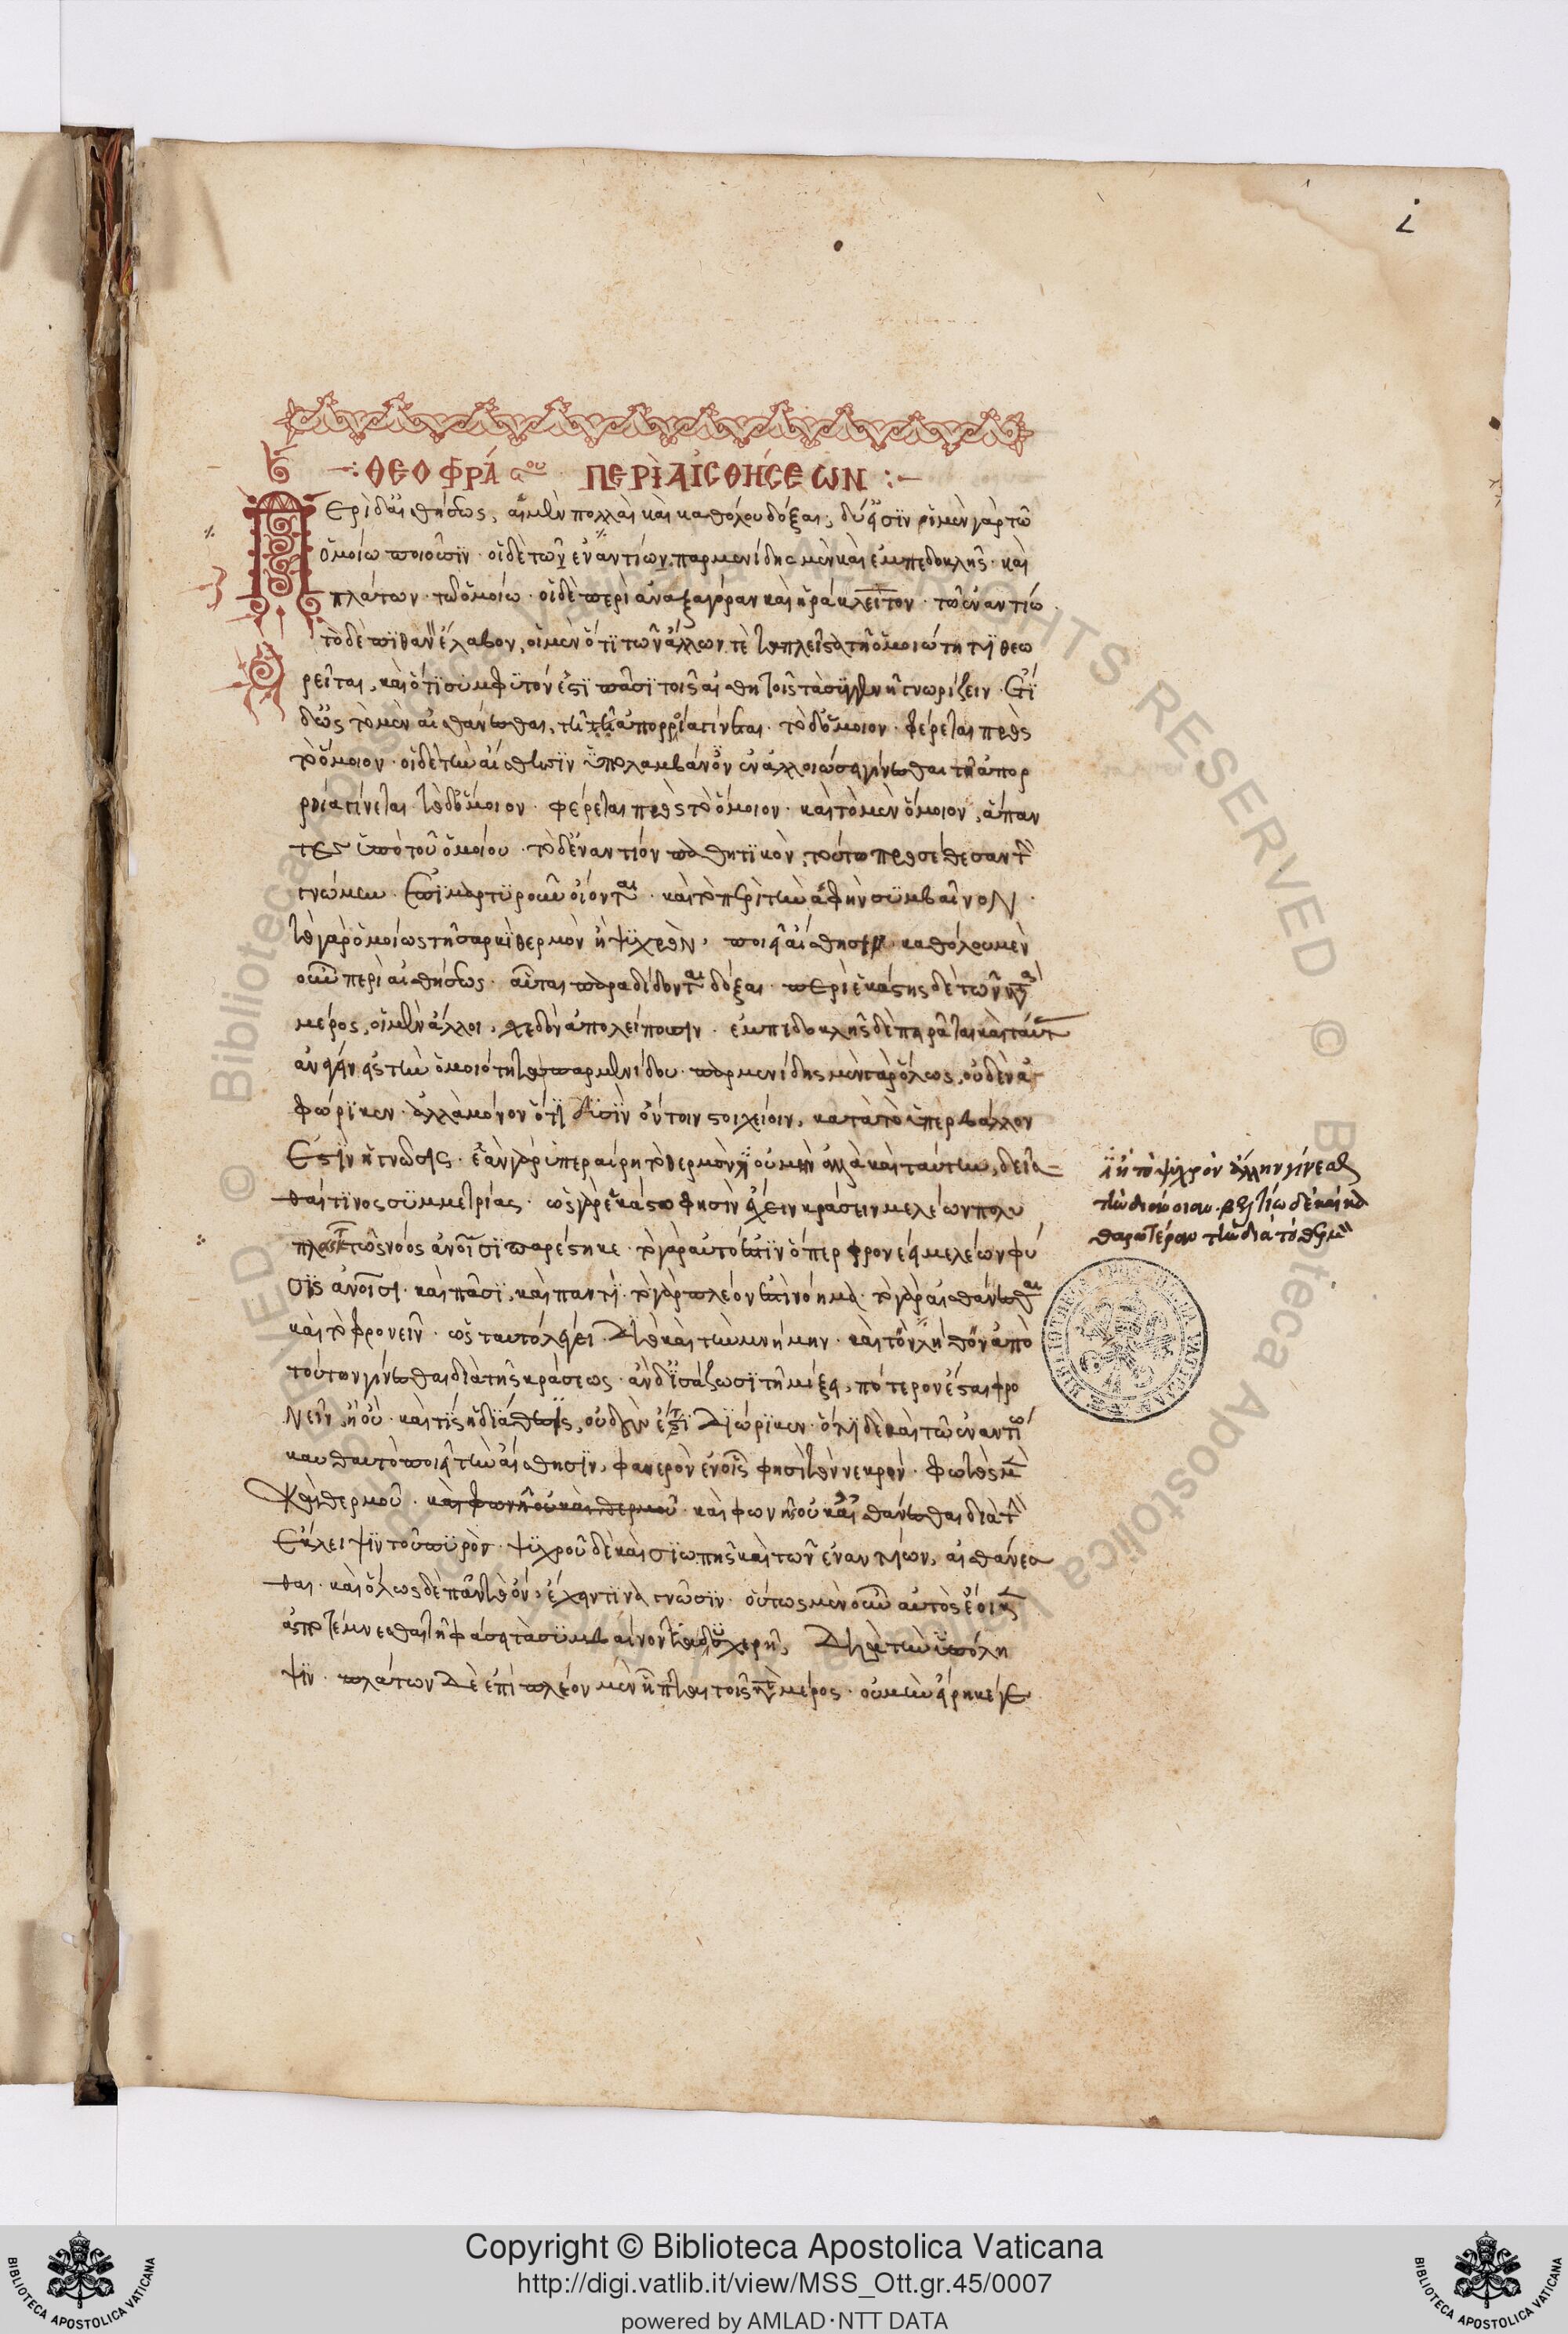 i
ΘΕΟΦΡΆστου ΠΕΡῚ ΑἸΣΘΉΣΕΩΝ :-
Περὶ δ' αἰσθήσεως, αἱ μὲν πολλαὶ καὶ καθόλου δόξαι, δύ' εἰσϊν οἱ μὲν γὰρ τῶ
ὁμοίω ποιοῦσϊν · οἱ δὲ τῶ ἐναντίων · παρμενίδης μὲν καὶ ἐμπεδοκλῆς · καὶ
πλάτων · τῶ ὁμοίω · οἱ δὲ περὶ ἀναξαγόραν καὶ ἡράκλειτον · τῶ ἐναντίω ·
τὸ δὲ πϊθανὸν ἔλαβον, οἱ μὲν ὅτϊ τῶν ἄλλων τὲ τὰ πλεῖστα τῆ ὁμοιώτητϊ θεω
ρεῖται, καὶ ὅτϊ σύμφϋτόν ἐστϊ πᾶσϊ τοῖς αἰσθητοῖς τὰ συγγενῆ γνωρίζειν · ἔτϊ
δ' ὡς τὸ μὲν αἰσθάνεσθαι, τῆ ἀπορροία γίνεται · τὸ δ' ὅμοιον · φέρεται πρὸς
τὸ ὅμοιον · οἱ δὲ τὴν αἴσθησϊν ὑπολαμβάνον ἐν ἀλλοιώσει γίνεσθαι τῆ ἀπορ
ροία γίνεται τὸ δ' ὅμοιον · φέρεται πρὸς τὸ ὅμοιον · καὶ τὸ μὲν ὅμοιον, ἅπαν
τες ὑπὸ τοῦ ὁμοίου · τὸ δ' ἐναντίον παθητϊκὸν, τούτω προσέθεσαν τὴν
γνώμην · ἐπϊμαρτϋροῦν οἴονται · καὶ τὸ περὶ τὴν ἁφὴν σϋμβαῖνον ·
τὸ γὰρ ὁμοίως τῆ σαρκϊ θερμὸν ἢ ψϋχρὸν, ποιεῖ αἴσθησιν · καθόλου μὲν
οὖν περὶ αἰσθήσεως · αὗται παραδίδονται δόξαι · περὶ ἑκάστης δὲ τῶν κατὰ
μέρος, οἱ μὲν ἄλλοι, σχεδὸν ἀπολείπουσιν · ἐμπεδοκλῆς δὲ πειρᾶται καὶ ταύτας
ἀνάγειν εἰς τὴν ὁμοιότητα παρμενίδου · παρμενίδης μὲν γὰρ ὅλως, οὐδὲν ἀ
φώρϊκεν · ἀλλὰ μόνον ὅτϊ δϋοῖν ὄντοιν στοιχείοιν, κατὰ τὸ ὑπερβάλλον
ἐστὶν ἡ γνῶσις · ἐὰν γὰρ ὑπεραίρη τὸ θερμὸν ἢ οὐ μὴν ἀλλὰ καὶ ταύτην, δεῖσ
θαί τϊνος σϋμμετρίας · ὡς γὰρ ἑκάστω φησὶν ἔχειν κράσειν μελέων πολυ
πλάγκτως νόος ἀνοῖσϊ παρέστηκε · τὸ γὰρ αὐτό ἐστϊν ὅπερ φρονέει μελέων φύ
σϊς ἀνοῖσι · καὶ πᾶσϊ, καὶ παντϊ · τὸ γὰρ πλέον ἐστὶ νόημα · τὸ γὰρ αἰσθάνεσθαι
καὶ τὸ φρονεῖν · ὡς ταυτὸ λέγει · διὸ καὶ τὴν μνήμην · καὶ τὴν λήθην ἀπὸ
τούτων γίνεσθαι διὰ τῆς κράσεως · ἂν δ' ἰσάζωσϊ τῆ μίξει, πότερον ἔσται φρο
νεῖν, ἢ οὔ · καὶ τίς ἡ διάθεσις, οὐδὲν ἔτϊ διώρϊκεν · ὅτϊ δὲ καὶ τῶ ἐναντίω
καθ αυτὸ ποιεῖ τὴν αἴσθησϊν, φανερὸν ἐν οἷς φησὶ τὸν νεκρὸν · φωτὸς μὲν
καὶ θερμοῦ · καὶ φωνῆς οὐκ αἰσθάνεσθαι διὰ τὴν
ἔκλειψϊν τοῦ πϋρὸς · ψϋχροῦ δὲ καὶ σϊωπῆς καὶ τῶν ἐναντίων, αἰσθάνεσ
θαι · καὶ ὅλως δὲ πᾶν τὸ ὄν, ἔχειν τϊνὰ γνῶσϊν · οὕτως μὲν οὖν αὐτὸς ἔοικεν
ἀποτέμνεσθαι τῆ φάσει τὰ σϋμβαίνοντα δϋσχερῆ, διὰ τὴν ὑπόλη
ψϊν · πλάτων δὲ ἐπὶ πλέον μὲν ἧπται τοῖς κατὰ μέρος · οὐ μὴν εἴρηκέ γε
ἢ τὸ ψυχρὸν ἄλλην γίνεσθαι
τὴν διάνοιαν · βελτίω δὲ καὶ κα
θαρωτέραν τὴν διὰ τὸ θερμὸν
Copyright © Biblioteca Apostolica Vaticana
http://digi.vatlib.it/view/MSS_Ott.gr.45/0007
powered by AMLAD·NTT DATA